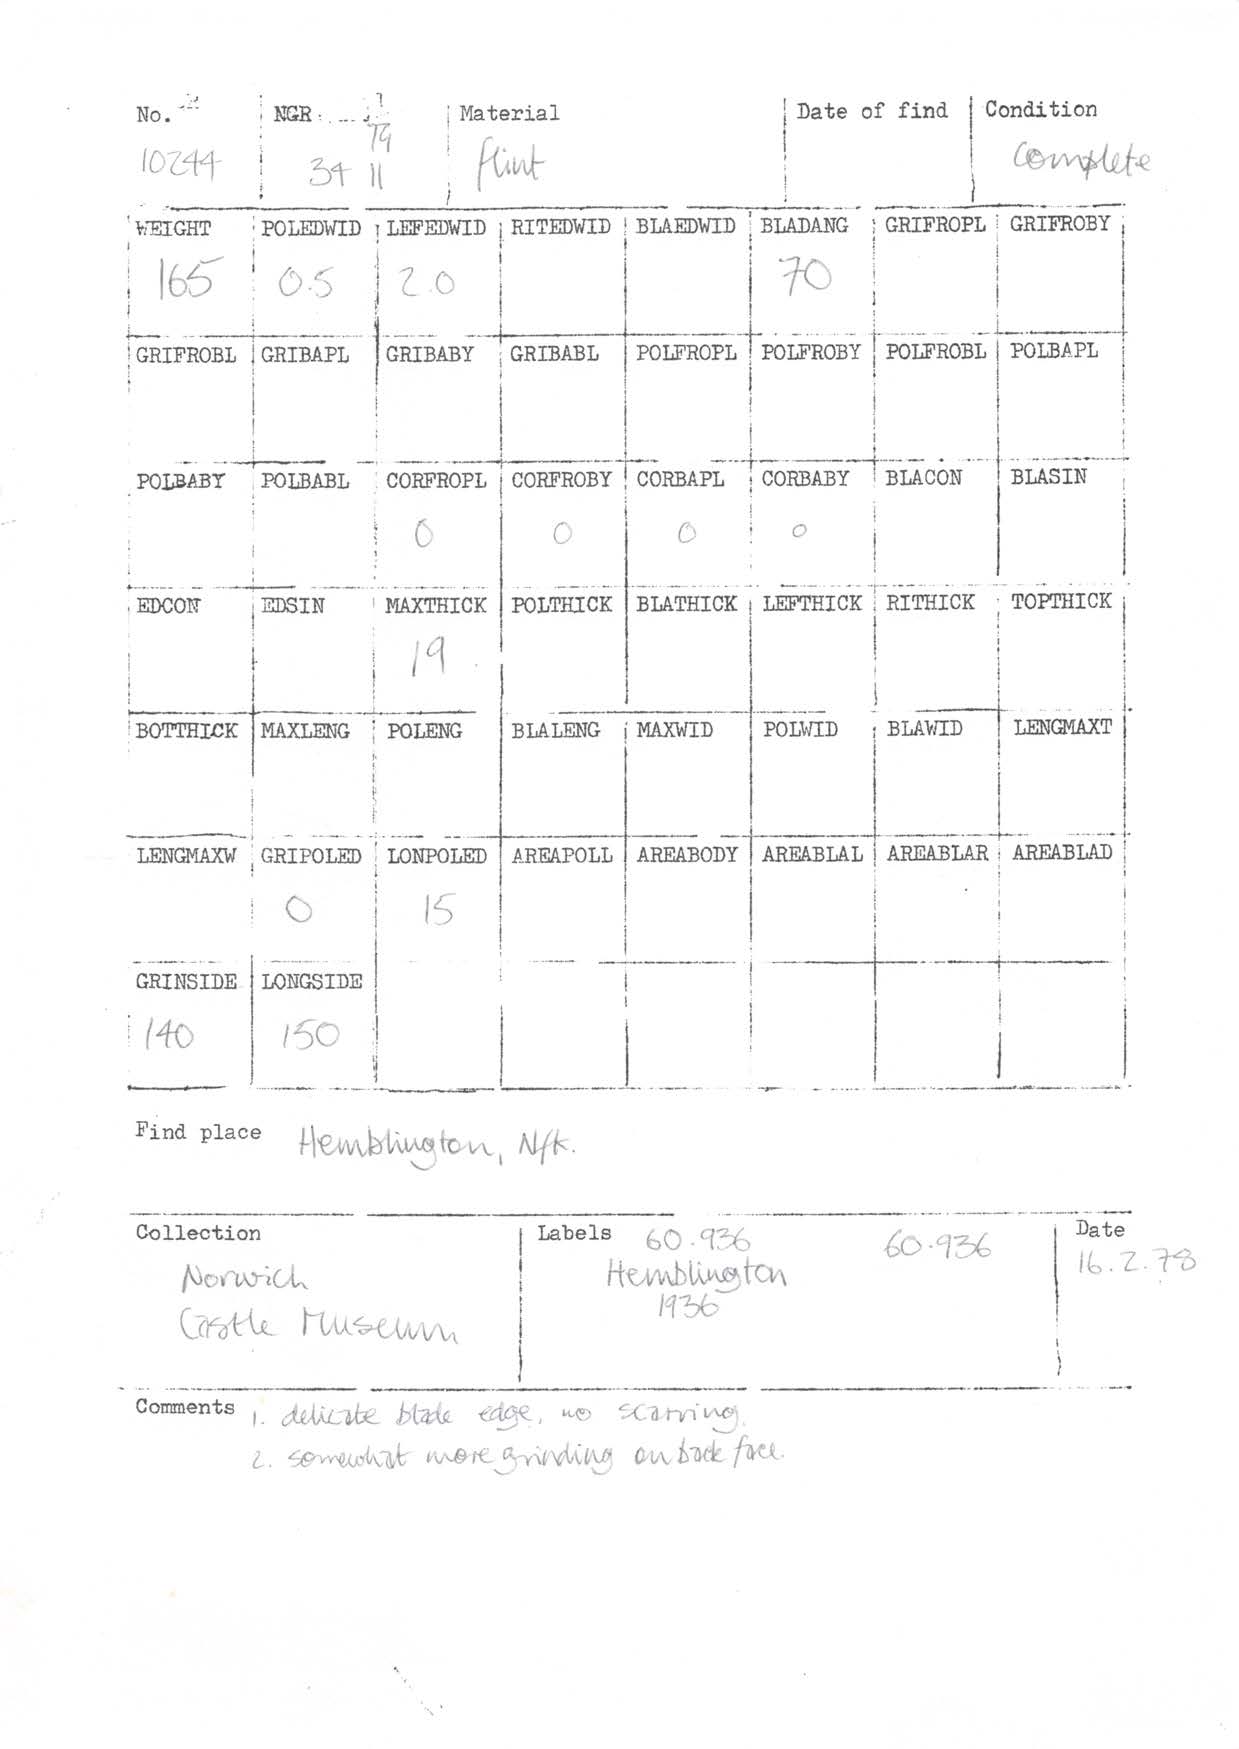 No. NGR Material Date of find Condition
10244 34 TG 11 flint complete
WEIGHT POLEDWID LEFEDWID RITEDWID BLAEDWID BLADANG GRIFROPL GRIFROBY
165 0.5 2.0 70
GRIFROBL GRIBAPL GRIBABY GRIBABL POLFROPL POLFROBY POLFROBL POLBAPL
POLBABY POLBABL CORFROPL CORFROBY CORBAPL CORBABY BLACON BLASIN
0 0 0 0
EDCON EDSIN MAXTHICK POLTHICK BLATHICK LEFTHICK RITHICK TOPTHICK
19
BOTTHICK MAXLENG POLENG BLALENG MAXWID POLWID BLAWID LENGMAXT
LENGMAXW GRIPOLED LONPOLED AREAPOLL AREABODY AREABLAL AREABLAR AREABLAD
0 15
GRINSIDE LONGSIDE
140 150
Find place Hemblington, Nfk.
Collection Labels 60.936 60.936 Date
Norwich Hemblington 16.2.78
Castle Museum 1936
Comments 1. delicate blade edge, no scarring.
2. somewhat more grinding on back face.